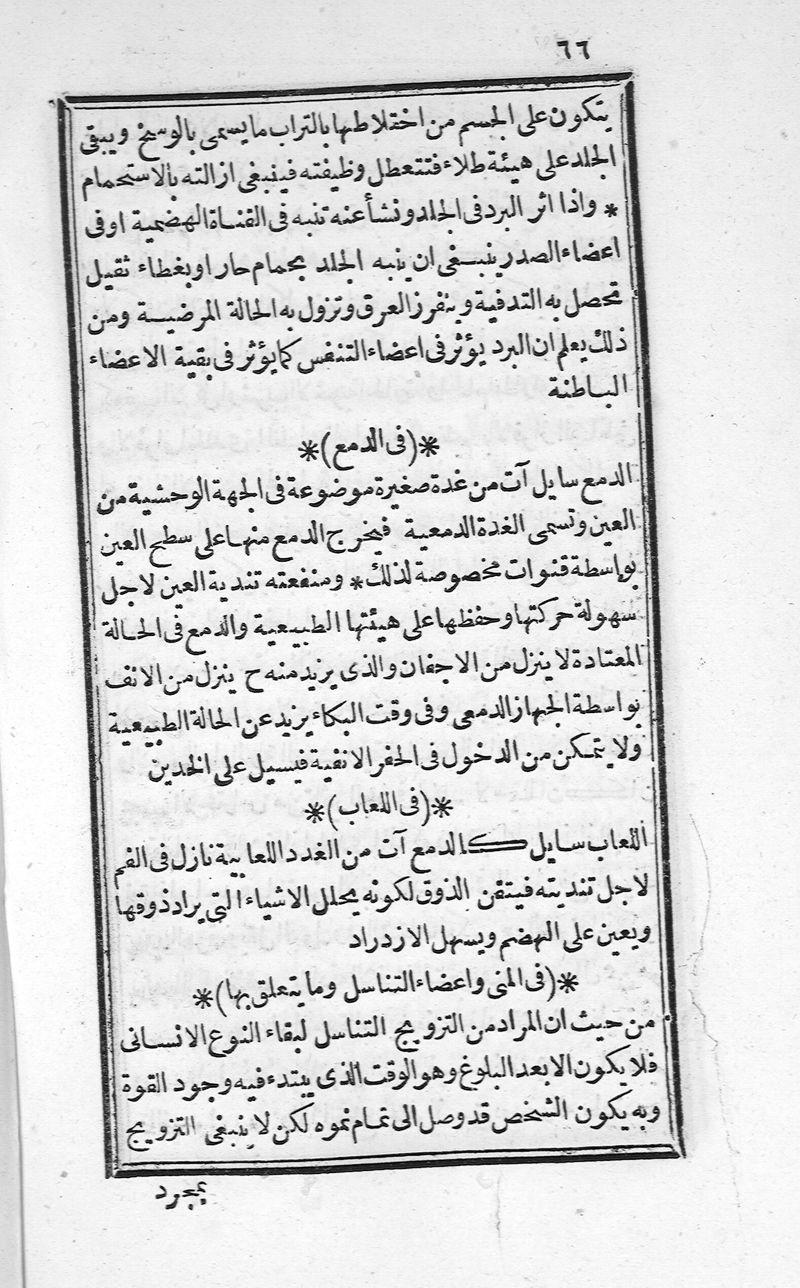 ٦٦
يتكون على الجسم من اختلاطها بالتراب ما يسمى بالوسخ ويبقى
الجلد على هيئة طلاء فتتعطل وظيفته فينبغى ازالته بالاستحمام
* واذا اثر البرد فى الجلد ونشأ عنه تنبه فى القناة الهضمية او فى
اعضاء الصدر ينبغى ان ينبه الجلد بحمام حار او بغطاء ثقيل
تحصل به التدفية وينفرز العرق وتزول به الحالة المرضية ومن
ذلك يعلم ان البرد يؤثر فى اعضاء التنفس كما يؤثر فى بقية الاعضاء
الباطنة
*(فى الدمع)*
الدمع سايل آت من غدة صغيرة موضوعة فى الجهة الوحشية من
العين وتسمى الغدة الدمعية فيخرج الدمع منها على سطح العين
بواسطة قنوات مخصوصة لذلك * ومنفعته تندية العين لاجل
سهولة حركتها وحفظها على هيئتها الطبيعية والدمع فى الحالة
المعتادة لا ينزل من الاجفان والذى يزيد منه ح ينزل من الانف
بواسطة الجهاز الدمعى وفى وقت البكاء يزيد عن الحالة الطبيعية
ولا يتمكن من الدخول فى الحفر الانفية فيسيل على الخدين
*(فى اللعاب)*
اللعاب سايل كالدمع آت من الغدد اللعابية نازل فى الفم
لاجل تنديته فيتقن الذوق لكونه يحلل الاشياء التى يراد ذوقها
ويعين على الهضم ويسهل الازدراد
*(فى المنى واعضاء التناسل وما يتعلق بها)*
من حيث ان المراد من التزويج التناسل لبقاء النوع الانسانى
فلا يكون الا بعد البلوغ وهو الوقت الذى يبتدء فيه وجود القوة
وبه يكون الشخص قد وصل الى تمام نموه لكن لا ينبغى التزويج
بمجرد